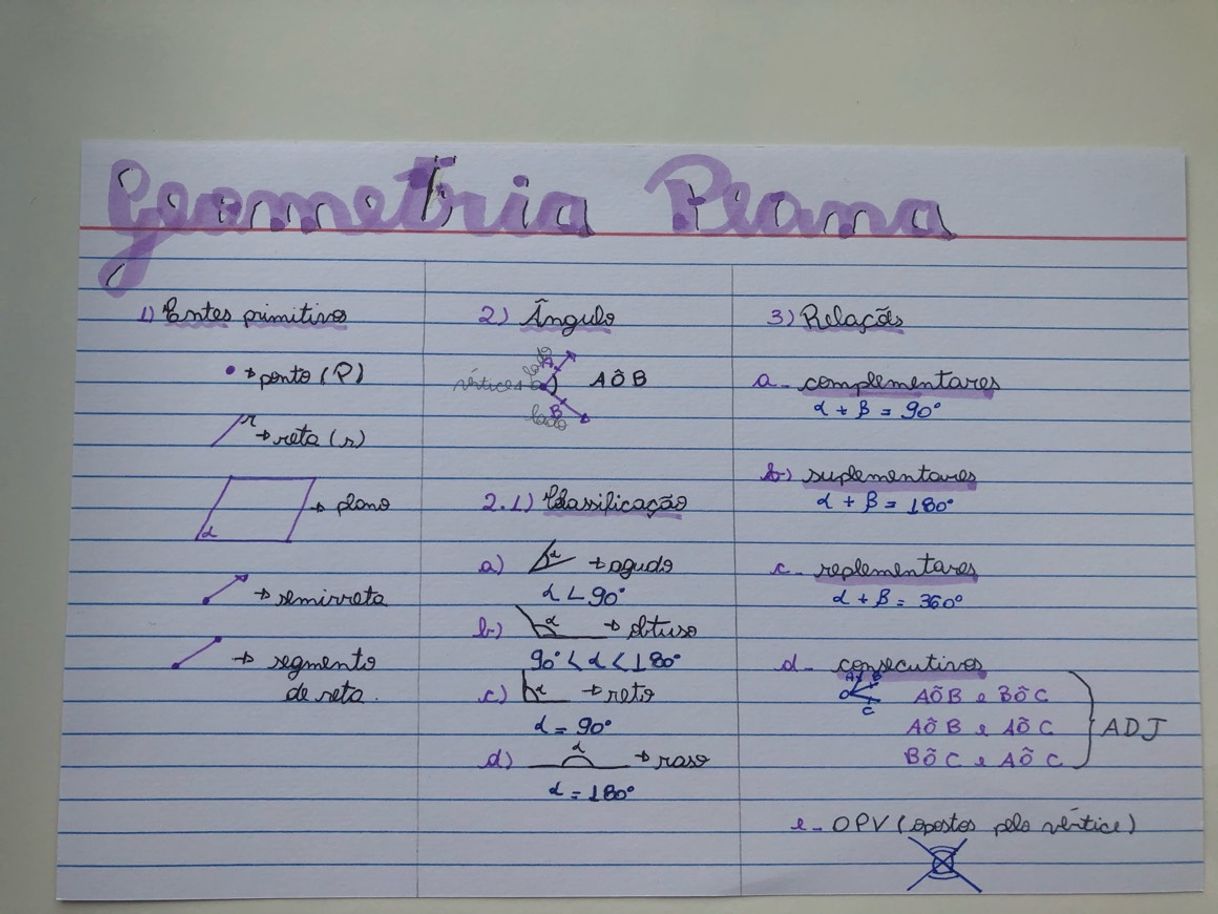 Geometria Plana
1) Entes primitivos
• → ponto (P)
r → reta (r)
α → plano
→ semirreta
→ segmento
de reta.
2) Ângulo
lado
A
vértices O AÔB
B
lado
2.1) Classificação
a) α → agudo
α < 90°
b) α → obtuso
90° < α < 180°
c) α → reto
α = 90°
d) α → raso
α = 180°
3) Relações
a- complementares
α + β = 90°
b) suplementares
α + β = 180°
c- replementares
α + β = 360°
d- consecutivos
A B
O AÔB e BÔC
C
AÔB e AÔC
BÔC e AÔC
ADJ
e- OPV (opostos pelo vértice)